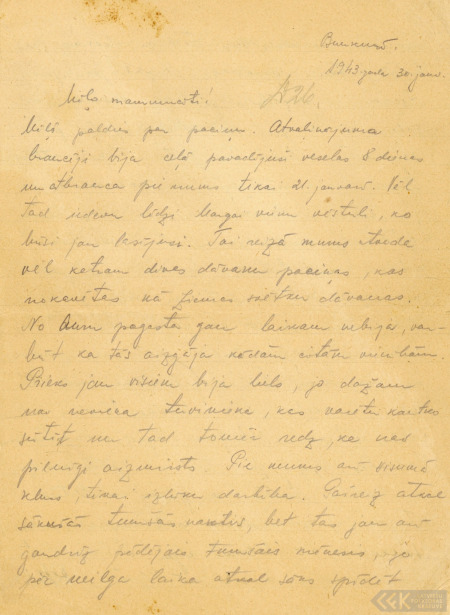 Bunkurā.
1943. gada 30. janv.
N 26.
Mīļo mammucīti!
Mīļš paldies par paciņu. Atvaļinājuma
braucēji bija ceļā pavadījuši veselas 8 dienas
un atbrauca pie mums tikai 21. janvarī. Vēl
tad iedevu līdzi Margai vienu vēstuli, ko
būsi jau lasījusi. Tai reizē mums atveda
vēl katram divas dāvanu paciņas, kas
nokavētas kā Ziemas svētku dāvanas.
No pagasta gan laikam nebija, var-
būt ka tās aizgāja kādām citām vienībām.
Prieks jau visiem bija liels, jo dažam
nav neviena tuvinieka, kas varētu kautko
sūtīt un tad tomēr redz, ka nav
pilnīgi aizmirsts. Pie mums arī visumā
kluss, tikai izlūku darbība. Pašreiz atkal
sākušās tumšās naktis, bet tas jau arī
gandrīz pēdējais tumšais mēness, jo
pēc neilga laika atkal sāks spīdēt